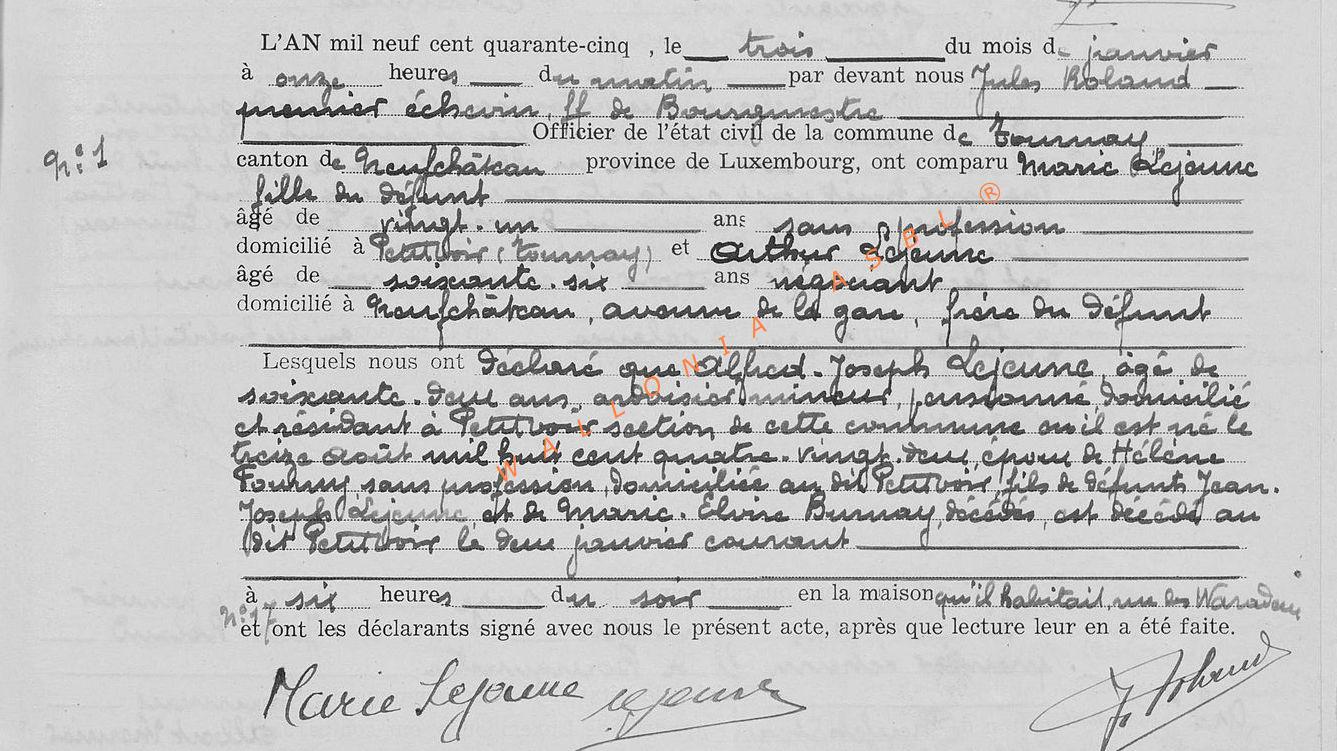 L'AN mil neuf cent quarante-cinq , le trois du mois de janvier
à onze heures du matin par devant nous Jules Roland
premier échevin, ff de Bourgmestre
Officier de l'état civil de la commune de Tournay
N.º 1
canton de Neufchâteau province de Luxembourg, ont comparu Marie Lejeune
fille du défunt
âgé de vingt-un ans sans profession
domicilié à Petitvoir (Tournay) et Arthur Lejeune
âgé de soixante-six ans négociant
domicilié à Neufchâteau, avenue de la gare, frère du défunt
Lesquels nous ont déclaré que Alfred-Joseph Lejeune, âgé de
soixante-deux ans, ardoisier mineur, pensionné, domicilié
et résidant à Petitvoir section de cette commune où il est né le
treize août mil huit cent quatre-vingt-deux, époux de Hélène
Fourny, sans profession, domiciliée au dit Petitvoir, fils de défunts Jean-
Joseph Lejeune et de Marie-Elvire Burnay, décédés, est décédé au
dit Petitvoir le deux janvier courant
à six heures du soir en la maison qu'il habitait, rue des
nº 17
et ont les déclarants signé avec nous le présent acte, après que lecture leur en a été faite.
Marie Lejeune Lejeune J. Roland
WALLONIA ASBL ®